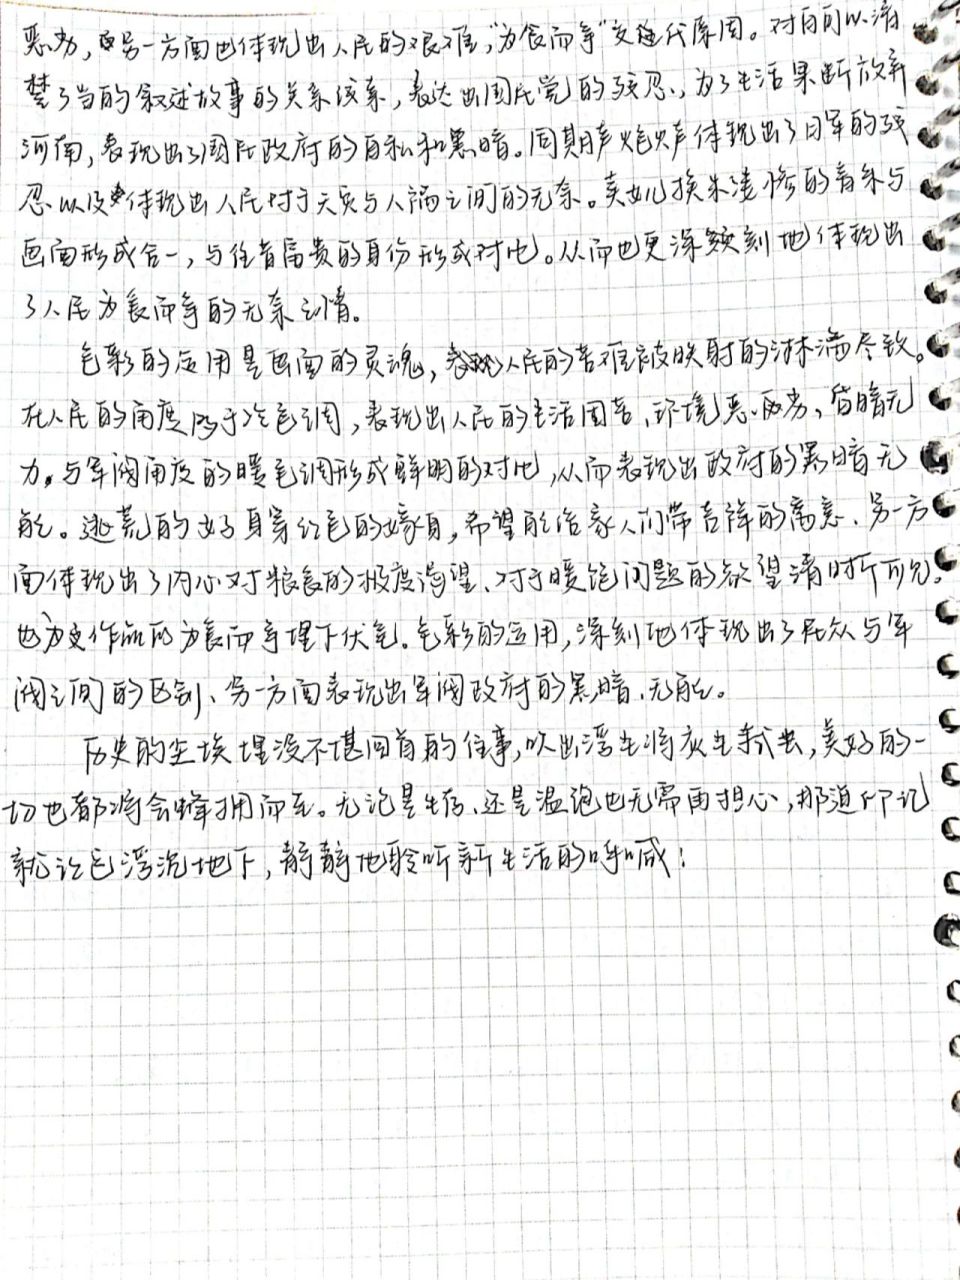 恶劣，另一方面也体现出人民的艰难，“为食而争”交代原因。对白可以清
楚了当的叙述故事的关系该系，表达出国民党的残忍，为了生活果断放弃
河南，表现出了国民政府的自私和黑暗。同期声炮火声体现出了日军的残
忍以及体现出人民对于天灾与人祸之间的无奈。卖女儿换米凄惨的音乐与
画面形成合一，与往昔富贵的身份形成对比。从而也更深刻地体现出
了人民为食而争的无奈之情。
色彩的应用是画面的灵魂，人民的苦难被映射的淋漓尽致。
在人民的角度属于冷色调，表现出人民的生活困苦，环境恶劣，昏暗无
力。与军阀角度的暖色调形成鲜明的对比，从而表现出政府的黑暗无
能。逃荒的女子身穿红色的嫁身，希望能给家人们带吉祥的寓意、另一方
面体现出了内心对粮食的极度渴望、对于暖饱问题的欲望清晰可见。
也为文作品的为食而争埋下伏笔。色彩的应用，深刻地体现出了民众与军
阀之间的区别、另一方面表现出军阀政府的黑暗、无能。
历史的尘埃埋没不堪回首的往事，吹出浮生将灰尘拭去，美好的一
切也都将会蜂拥而至。无论是生存、还是温饱也无需再担心，那道印记
就让它浮沉地下，静静地聆听新生活的呼喊！